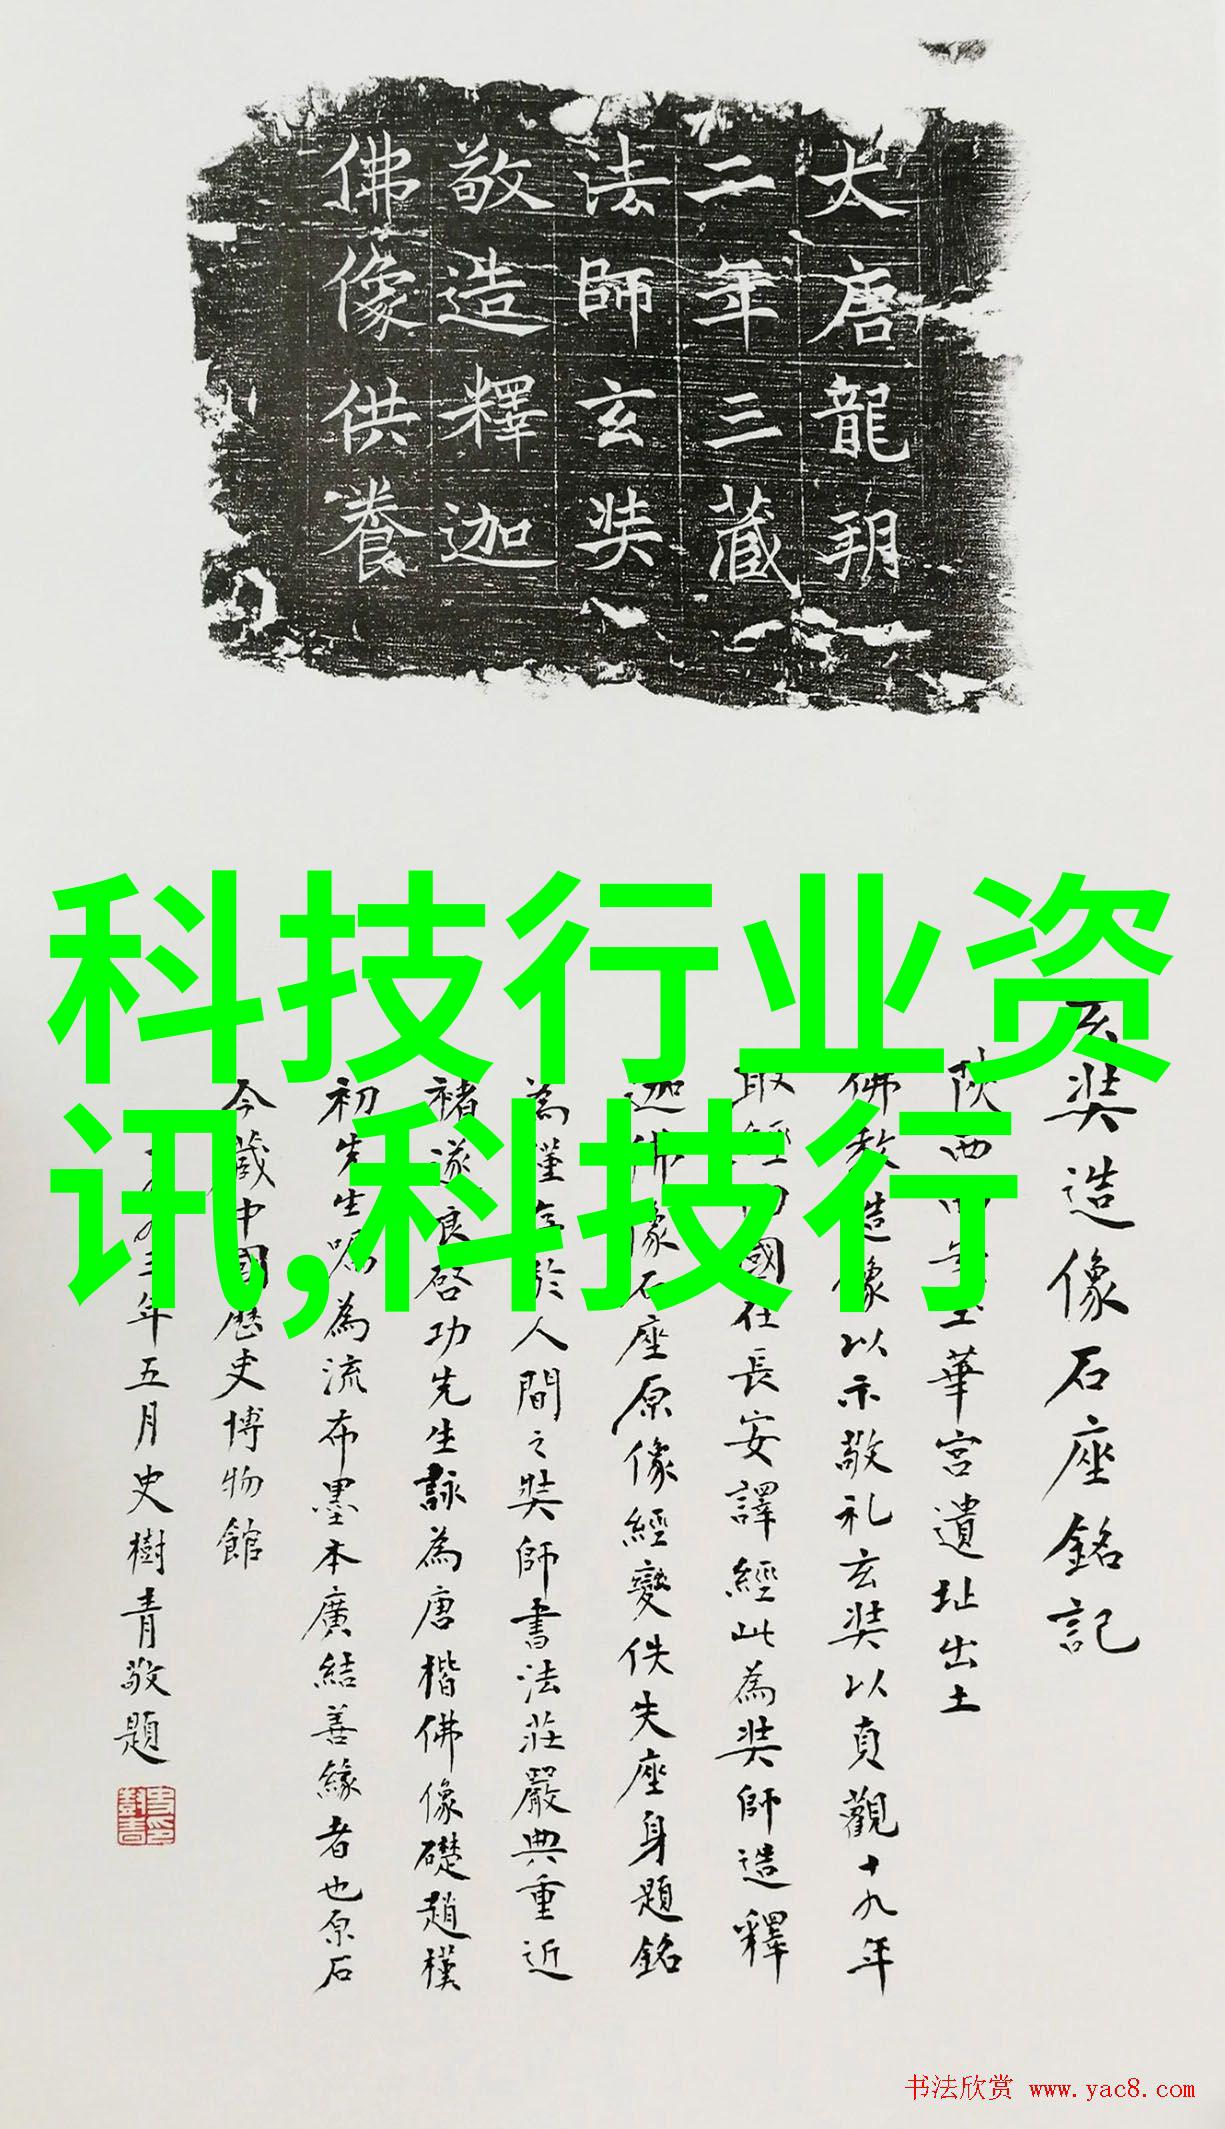 大唐龍朔
二年三藏
法師玄奘
敬造釋迦
佛像供養
科技行业资
讯,科技行
奘造像石座銘記
陝西
華宮遺址出土
佛教造像以示敬礼玄奘以貞觀十九年
取經回國在長安譯經此為奘師造釋
迦佛像石座原像經變佚失座身題銘
為僅存於人間之奘師書法莊嚴典重近
褚遂良啓功先生詠為唐楷佛像礎趙樸
初先生囑為流布墨本廣結善緣者也原石
今藏中國歷史博物館
三年五月史樹青敬題
书法欣赏 www.yac8.com